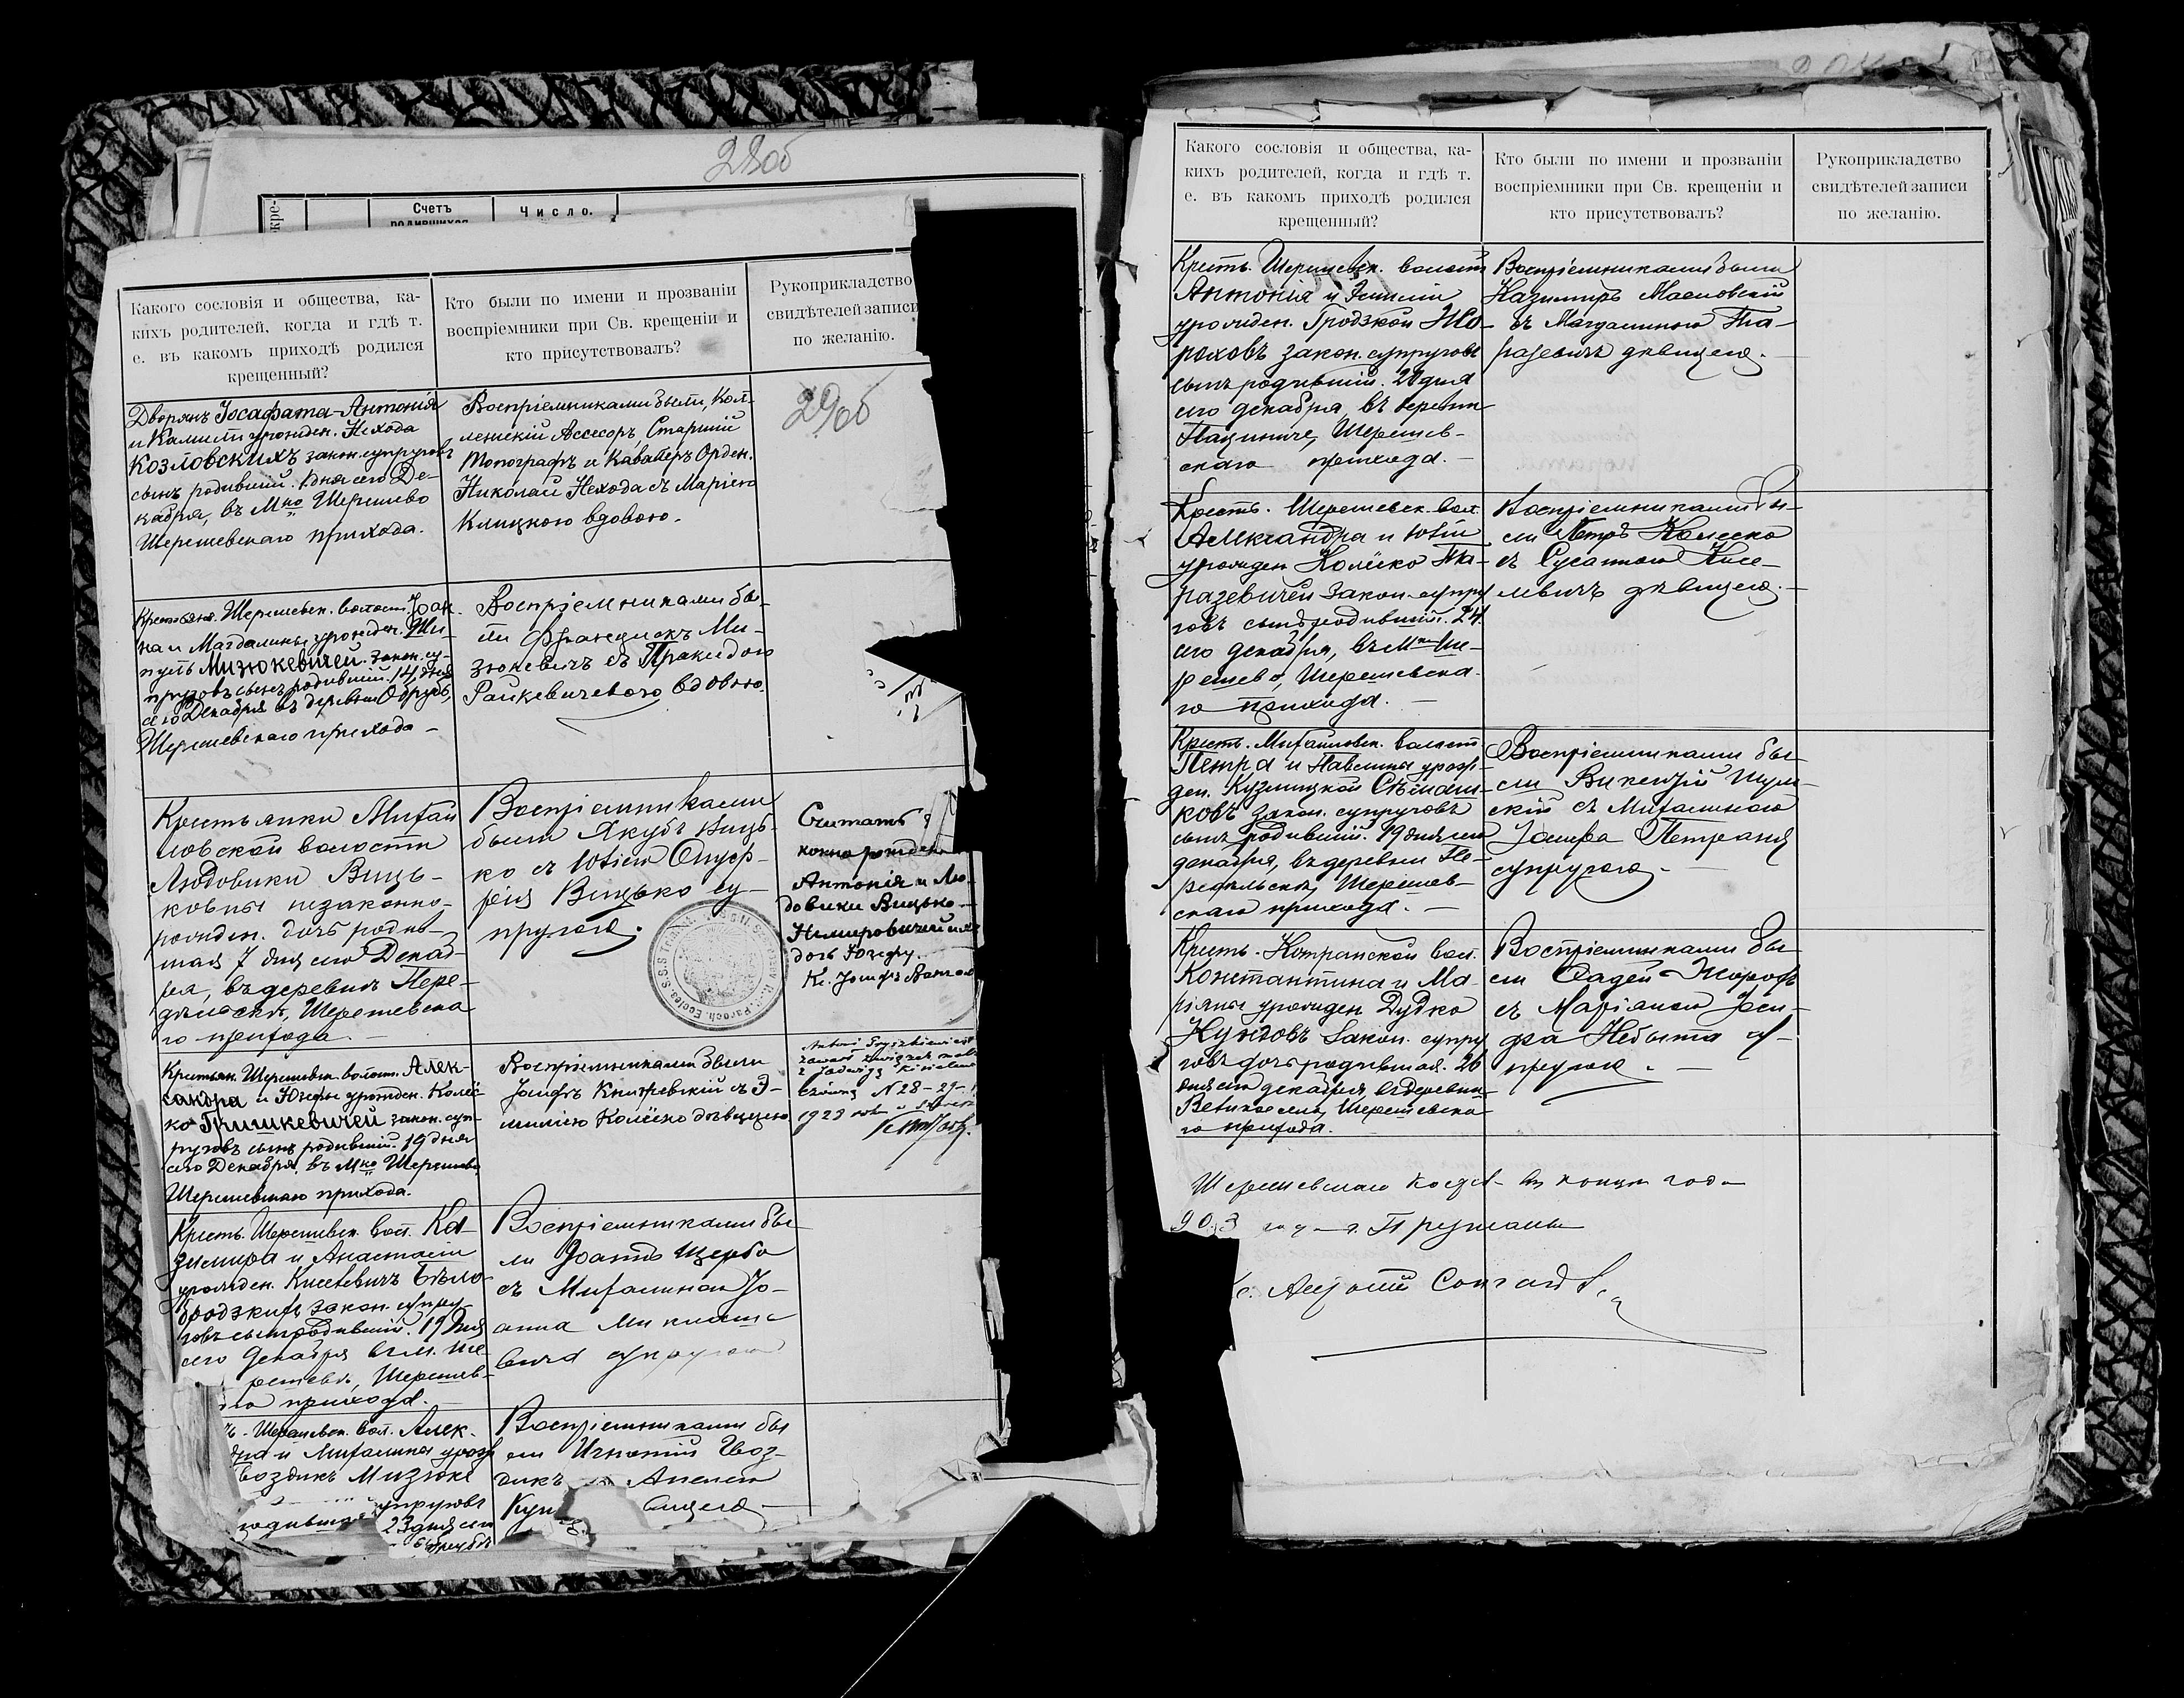 28об
Счетъ
родившихся
Число.
Какого сословія и общества, ка-
кихъ родителей, когда и гдѣ т.
е. въ какомъ приходѣ родился
крещенный?
Кто были по имени и прозванію
воспріемники при Св. крещеніи и
кто присутствовалъ?
Рукоприкладство
свидѣтелей записи
по желанію.
Дворянъ Іосафата-Антонія
и Камили урожден. Нехода
Козловскихъ закон. супруговъ
сынъ родивший. 1 дня сего Де-
кабря, въ Мко Шерешево
Шерешевскаго прихода.
Воспріемниками были, Кол-
лежскій Ассесоръ, Старшій
Топографъ и Кавалеръ Орден.
Николай Нехода съ Маріею
Клицкою вдовою.
29об
Шерешевск. волости Іоан-
на и Магдалины урожден. Ши-
пуль Мизюкевичей закон. су-
пруговъ сынъ родивший. 14 дня
сего Декабря въ деревни Обрубъ,
Шерешевскаго прихода
Воспріемниками бы-
ли Францискъ Ми-
зюкевичъ съ Пракседою
Рацкевичевою вдовою.
Крестьянки Михай
ловской волости
Людовики Виць-
ковны незаконно-
рожден. дочь родив-
шая 7 дня сего Декаб-
ря, въ деревнѣ Пере-
дѣльскѣ, Шерешевска
го прихода.
Воспріемниками
были Якубъ Виць-
ко съ Юліею Онуф-
рія Вицько су-
пругою.
Считать
Антонія и Лю-
довики Вицько-
дочь Юзефу.
Кс. Іосифъ
Крестьян. Шерешевск. волост. Алек-
сандра и Юзефы урожден. Колей
ко Гришкевичей закон. суп-
руговъ сынъ родивший. 19 дня
сего Декабря, въ Мко Шерешево
Шерешевскаго прихода.
Воспріемниками были
Іосифъ Книжевскій съ Э-
милію Колейко дѣвицею
Antoni Gryszkiewicz
zawarł związek małż.
z Jadwigą
N 28-29-
1928 roku
Кресть. Шерешевск. вол. Ка-
зимира и Анастасіи
урожден. Киселевичъ Бѣло-
бродзкихъ закон. супру-
говъ сынъ родивший. 19 дня
сего Декабря въ м. Ше-
решевѣ, Шерешев-
прихода.
Воспріемниками бы
ли Іоаннъ Щерба
съ Михалиною Іо-
анна Миклаше
вича супругою
Шерешевск. вол. Алек-
и Михалины урож
Мизюке
супруговъ
23 дня сего
Воспріемниками бы
ли Игнатій Гвоз-
дикъ Анелею
Какого сословія и общества, ка-
кихъ родителей, когда и гдѣ т.
е. въ какомъ приходѣ родился
крещенный?
Кто были по имени и прозваніи
воспріемники при Св. крещеніи и
кто присутствовалъ?
Рукоприкладство
свидѣтелей записи
по желанію.
Кресть. Шерешевск. волости
Антонія и Эмиліи
урожден. Гродзкой Жо-
роховъ закон. супруговъ
сынъ родивший. 20 дня
сего декабря, въ деревни
Пациничe, Шерешев-
скаго прихода.
Воспріемниками были
Казимиръ Масловскій
съ Магдалиною Та-
разевичъ дѣвицею.
Кресть. Шерешевск. вол.
Александра и Юліи
урожден Колейко Та-
разевичей закон. супру
говъ сынъ родивший. 24
сего декабря, въ Мко Ше-
решево, Шерешевска-
го прихода.
Воспріемниками бы-
ли Петръ Колейко
съ Сусанною Кисе-
левичъ дѣвицею.
Кресть. Михайловск. волости
Петра и Павлины урож-
ден. Кузмицкой Сѣмаш-
ковъ закон. супруговъ
сынъ родивший. 19 дня сего
декабря, въ деревни Пе-
редѣльскѣ, Шерешев-
скаго прихода.
Воспріемниками бы-
ли Викентій Шум-
скій съ Михалиною
Іосифа Петраня
супругою.
Кресть. Котранской вол.
Константина и Ма-
ріяны урожден Дудко
закон. супру
говъ дочь родившая. 26
дня сего декабря, въ деревни
Великоселѣ, Шерешевска
го прихода.
Воспріемниками бы-
ли Фадей Жорохъ
съ Маріаною Іоси-
фа Небыта су-
пругою.
903 г. Пружаны